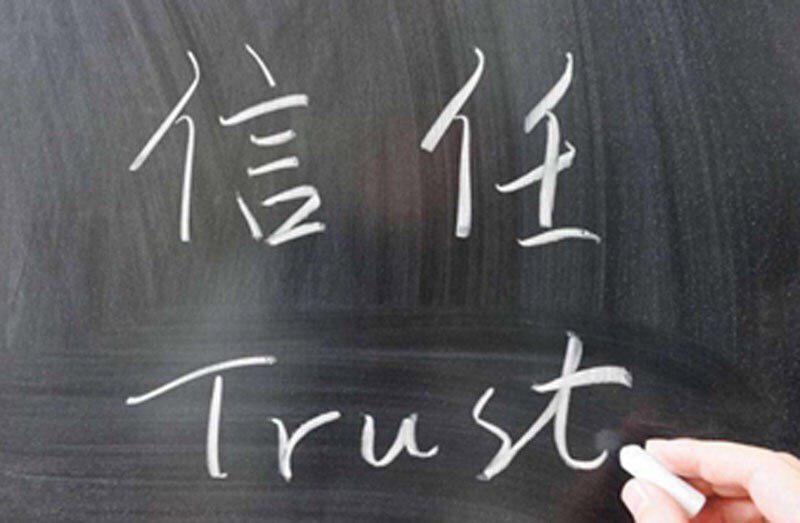 信任
Trust